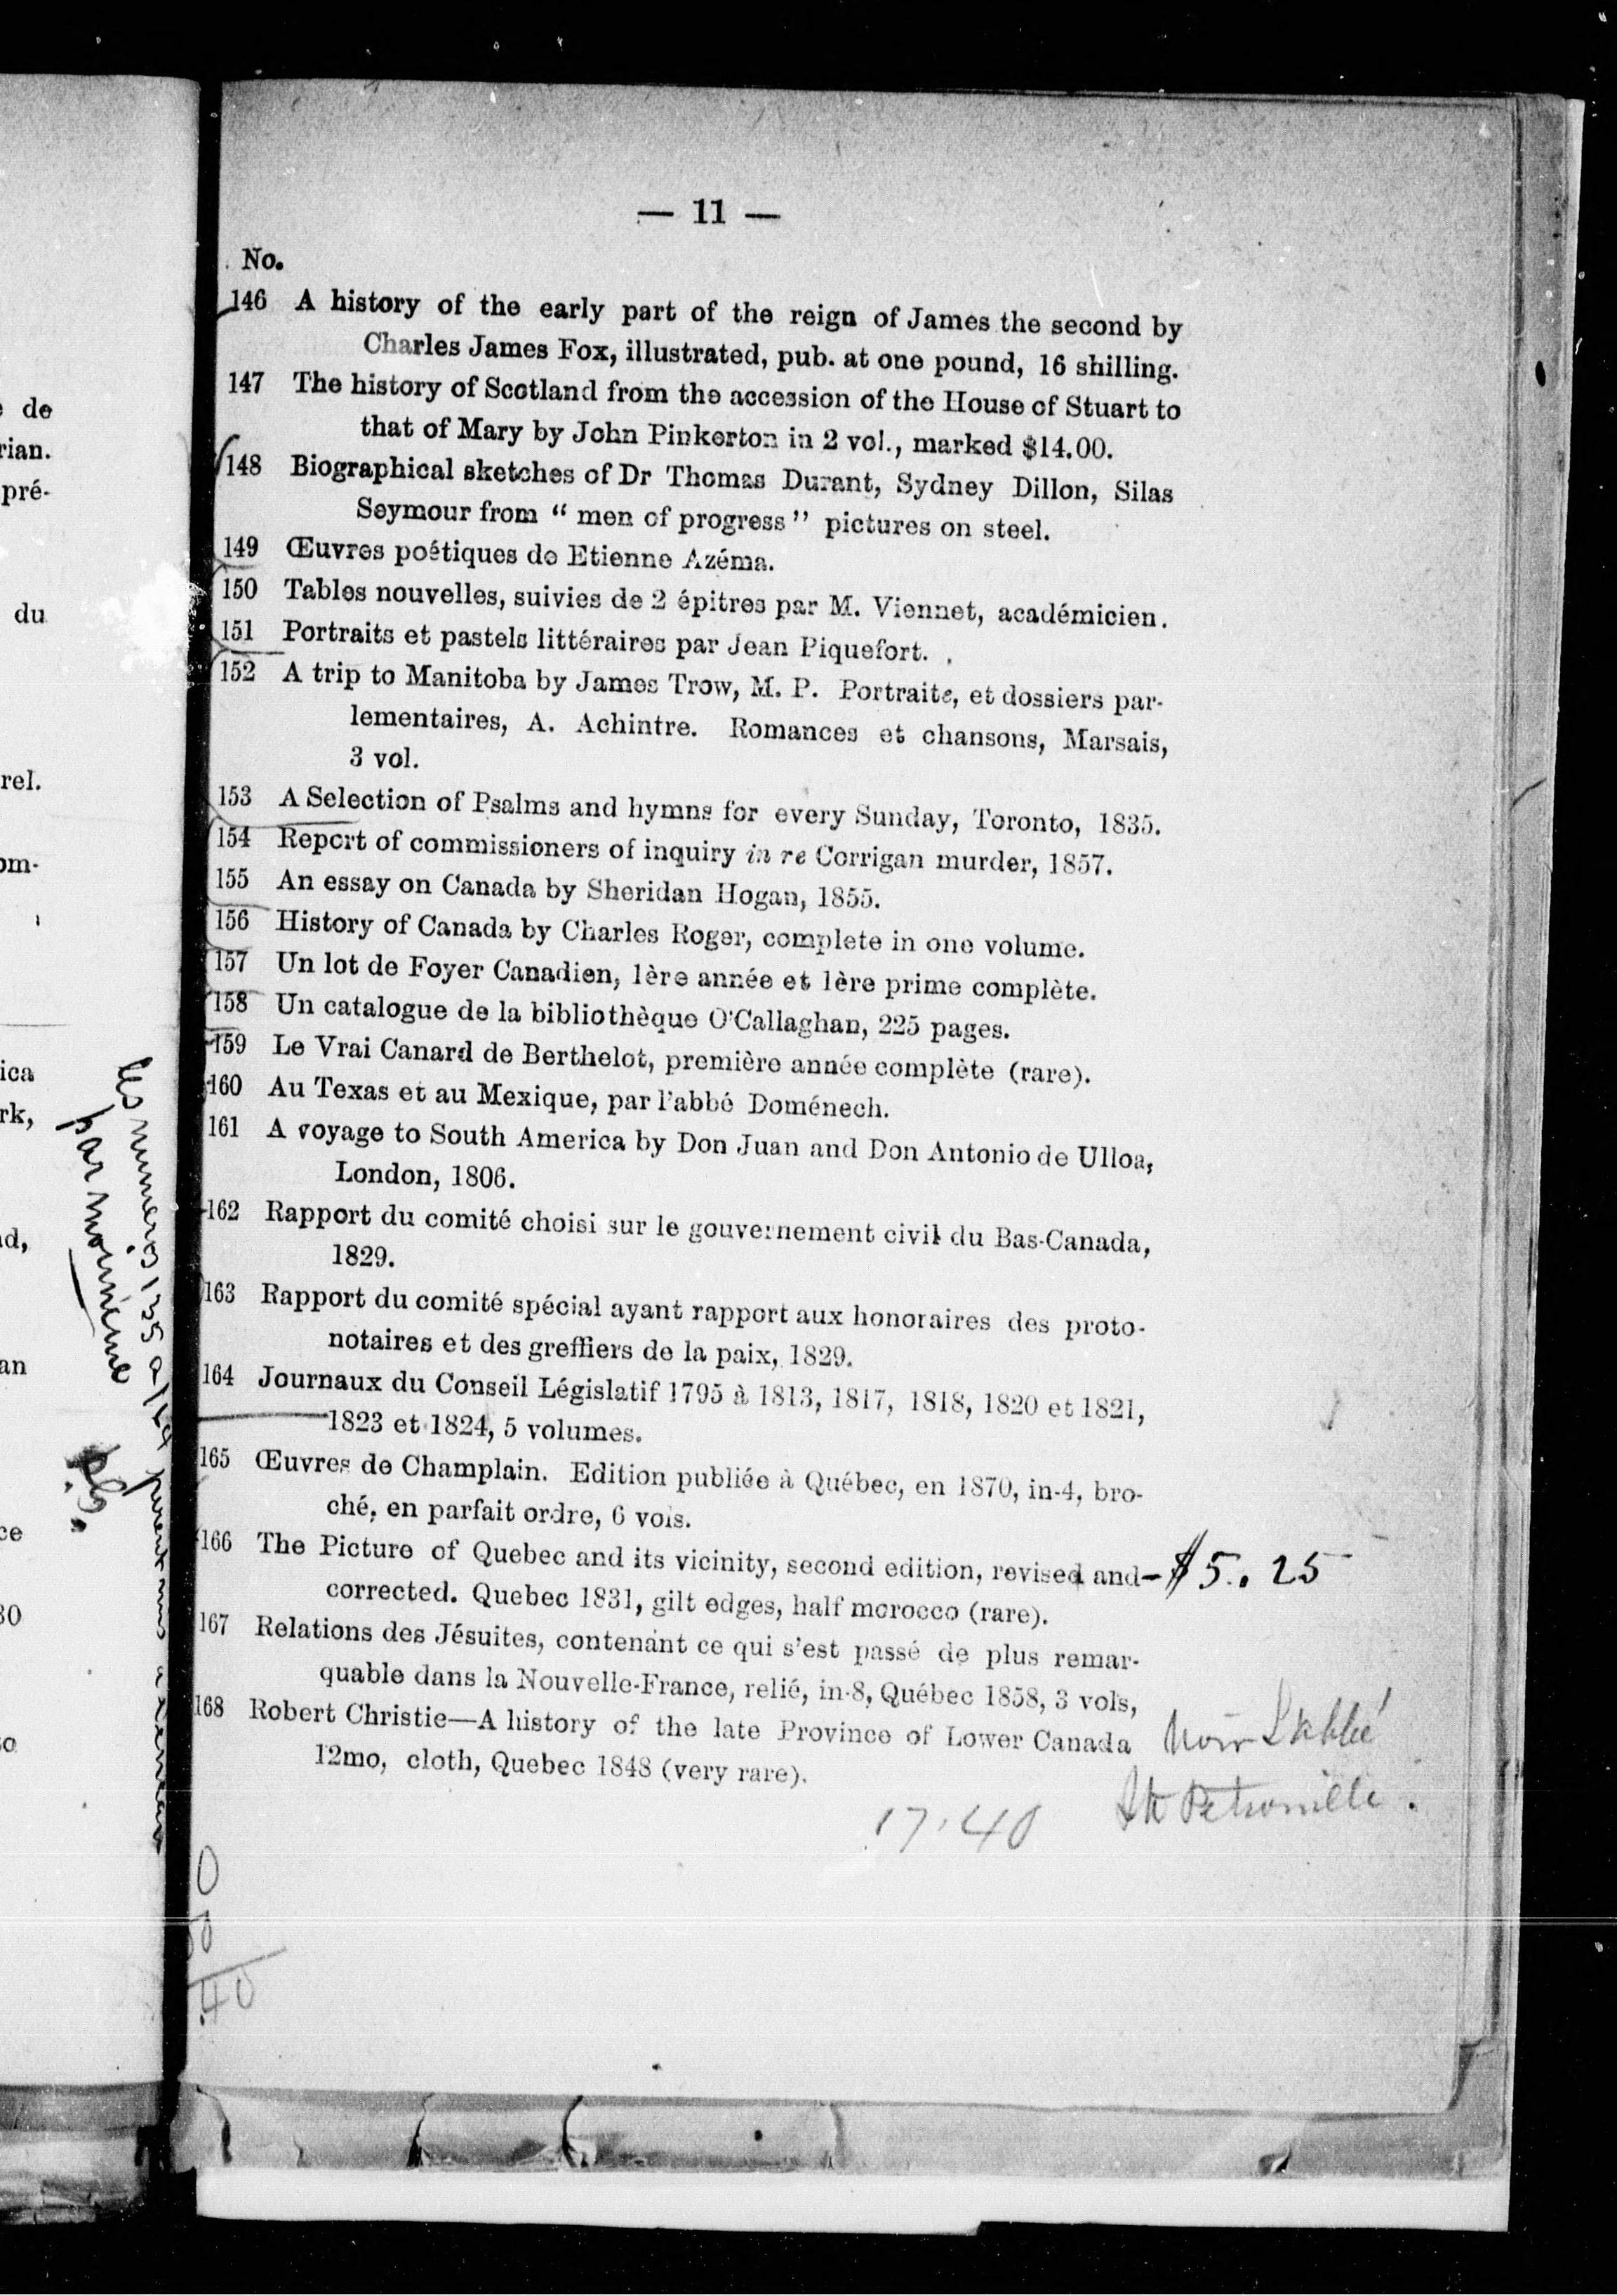 — 11 —
No.
146 A history of the early part of the reign of James the second by
Charles James Fox, illustrated, pub. at one pound, 16 shilling.
147 The history of Scotland from the accession of the House of Stuart to
that of Mary by John Pinkerton in 2 vol., marked $14.00.
148 Biographical sketches of Dr Thomas Durant, Sydney Dillon, Silas
Seymour from “ men of progress ” pictures on steel.
149 Œuvres poétiques de Etienne Azéma.
150 Tables nouvelles, suivies de 2 épitres par M. Viennet, académicien.
151 Portraits et pastels littéraires par Jean Piquefort.
152 A trip to Manitoba by James Trow, M. P. Portraits, et dossiers par-
lementaires, A. Achintre. Romances et chansons, Marsais,
3 vol.
153 A Selection of Psalms and hymns for every Sunday, Toronto, 1835.
154 Report of commissioners of inquiry in re Corrigan murder, 1857.
155 An essay on Canada by Sheridan Hogan, 1855.
156 History of Canada by Charles Roger, complete in one volume.
157 Un lot de Foyer Canadien, 1ère année et 1ère prime complète.
158 Un catalogue de la bibliothèque O'Callaghan, 225 pages.
159 Le Vrai Canard de Berthelot, première année complète (rare).
160 Au Texas et au Mexique, par l'abbé Doménech.
161 A voyage to South America by Don Juan and Don Antonio de Ulloa,
London, 1806.
162 Rapport du comité choisi sur le gouvernement civil du Bas-Canada,
1829.
163 Rapport du comité spécial ayant rapport aux honoraires des proto-
notaires et des greffiers de la paix, 1829.
164 Journaux du Conseil Législatif 1795 à 1813, 1817, 1818, 1820 et 1821,
1823 et 1824, 5 volumes.
165 Œuvres de Champlain. Edition publiée à Québec, en 1870, in-4, bro-
ché, en parfait ordre, 6 vols.
166 The Picture of Quebec and its vicinity, second edition, revised and - $5.25
corrected. Quebec 1831, gilt edges, half morocco (rare).
167 Relations des Jésuites, contenant ce qui s'est passé de plus remar-
quable dans la Nouvelle-France, relié, in-8, Québec 1858, 3 vols,
168 Robert Christie—A history of the late Province of Lower Canada
12mo, cloth, Quebec 1848 (very rare).
L'abbé
Petronille.
17.40
0
40
de
rian.
pré-
du
rel.
om-
ica
rk,
nd,
an
ce
30
so
les numéros 135 a
par moi même